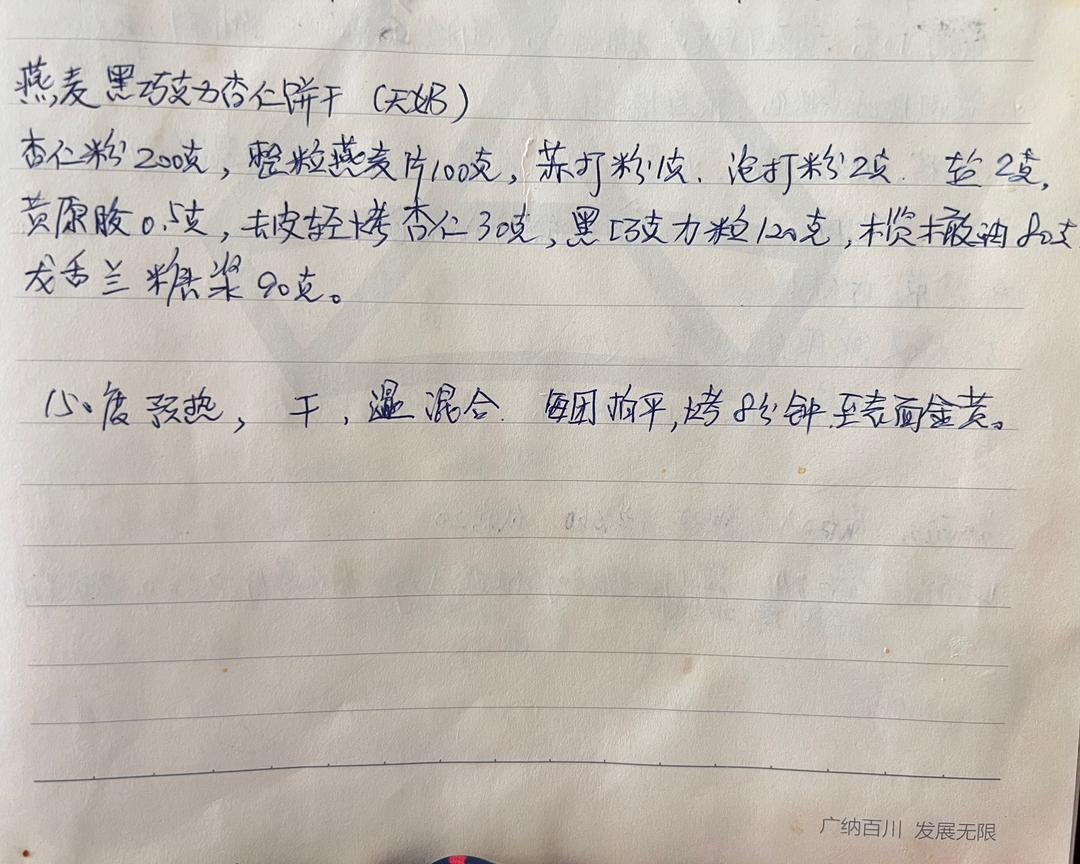 燕麦黑巧克力杏仁饼干
杏仁粉200克，整粒燕麦片100克，苏打粉1克、泡打粉2克. 盐2克，
黄原胶0.5克，去皮轻烤杏仁30克，黑巧克力粒120克，榄橄油80克
龙舌兰糖浆90克。
150度预热，干，湿混合. 每团拍平，烤8分钟.至表面金黄。
广纳百川 发展无限